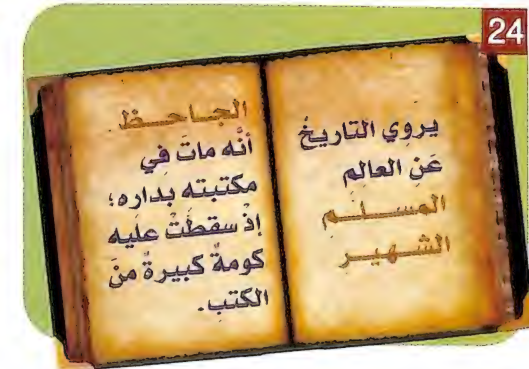 24
يروي التاريخُ
عَنِ العالِمِ
المسلمِ
الشهيرِ
الجاحظ
أنَّه ماتَ في
مكتبته بداره؛
إذْ سقطَتْ عليه
كومةٌ كبيرةٌ منَ
الكتبِ.